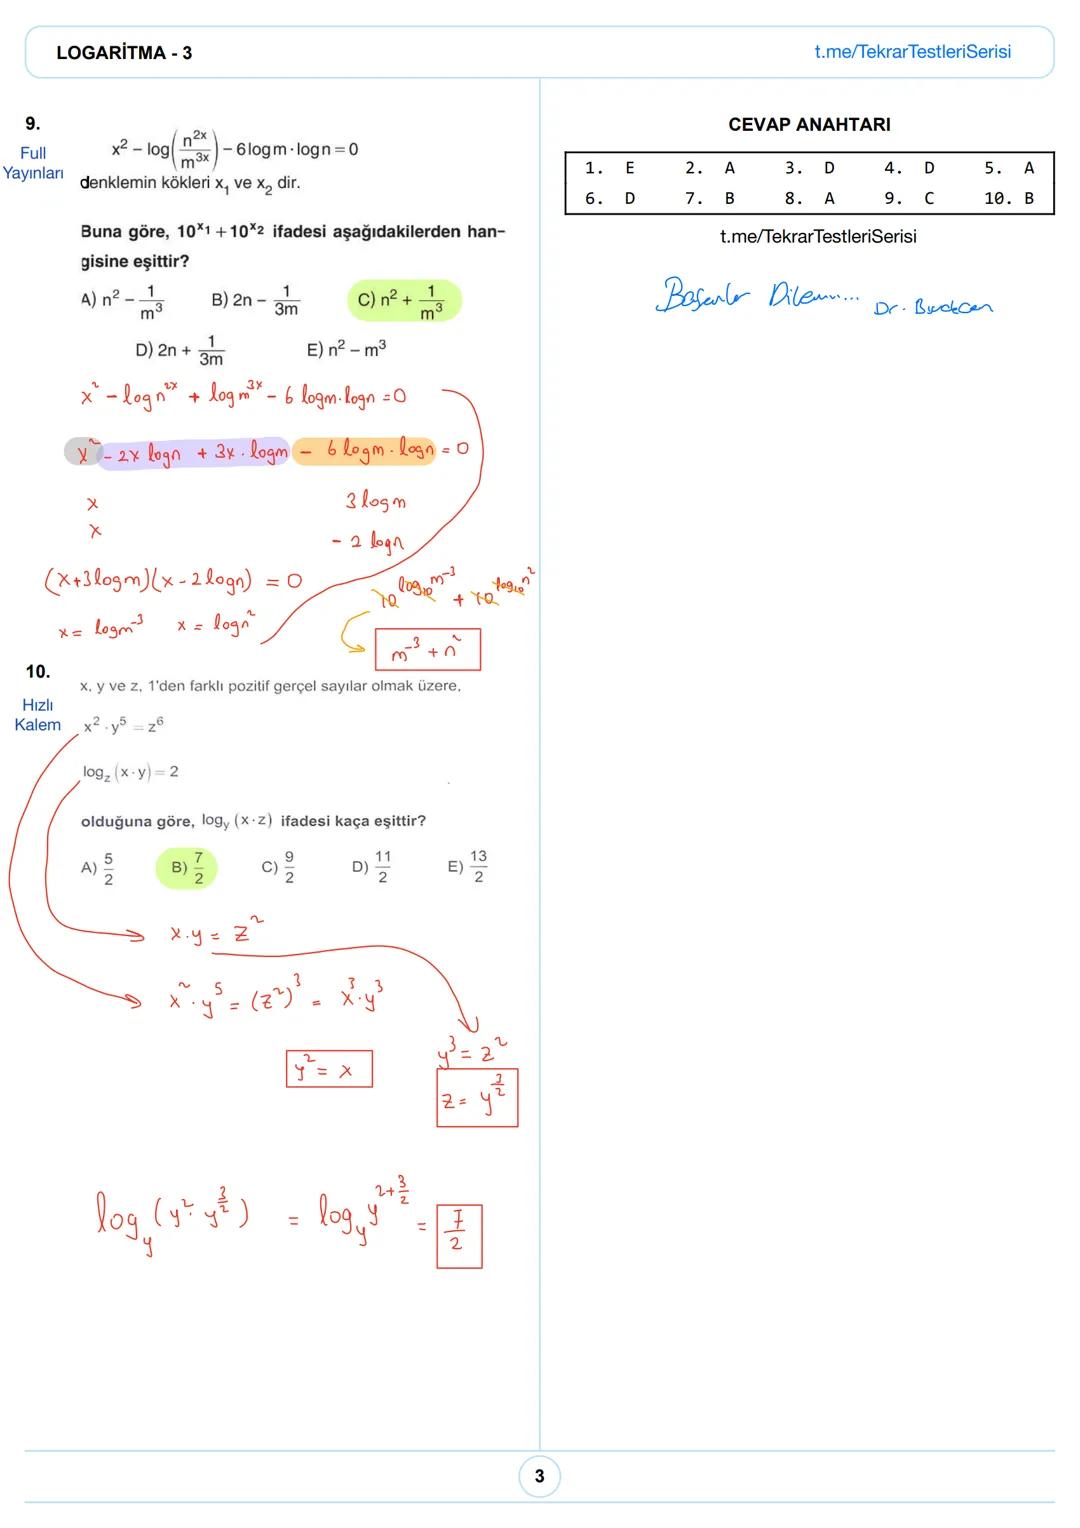 LOGARİTMA - 3
t.me/TekrarTestleriSerisi
9.
Full
Yayınları
x² – log(n^{2x}/m^{3x}) – 6logm·logn = 0
denklemin kökleri x₁ ve x₂ dir.
Buna göre, 10^{x₁} + 10^{x₂} ifadesi aşağıdakilerden han-
gisine eşittir?
A) n² – 1/m³ B) 2n – 1/3m C) n² + 1/m³
D) 2n + 1/3m E) n² – m³
x² - logn^{2x} + logm^{3x} - 6 logm.logn = 0
x² - 2x logn + 3x . logm - 6 logm . logn = 0
x 3 logm
x - 2 logn
(x+3logm)(x-2logn) = 0
x = logm^{-3} x = logn²
10^{log₁₀m^{-3}} + 10^{log₁₀n²}
m^{-3} + n²
10.
Hızlı
Kalem
x, y ve z, 1'den farklı pozitif gerçel sayılar olmak üzere,
x² · y⁵ = z⁶
log_z (x·y) = 2
olduğuna göre, log_y (x·z) ifadesi kaça eşittir?
A) 5/2 B) 7/2 C) 9/2 D) 11/2 E) 13/2
x.y = z²
x² . y⁵ = (z²)³ = x³.y³
y² = x
y³ = z²
z = y^{3/2}
log_y (y² . y^{3/2}) = log_y y^{2+3/2} = 7/2
CEVAP ANAHTARI
1. E 2. A 3. D 4. D 5. A
6. D 7. B 8. A 9. C 10. B
t.me/TekrarTestleriSerisi
Dr.
3